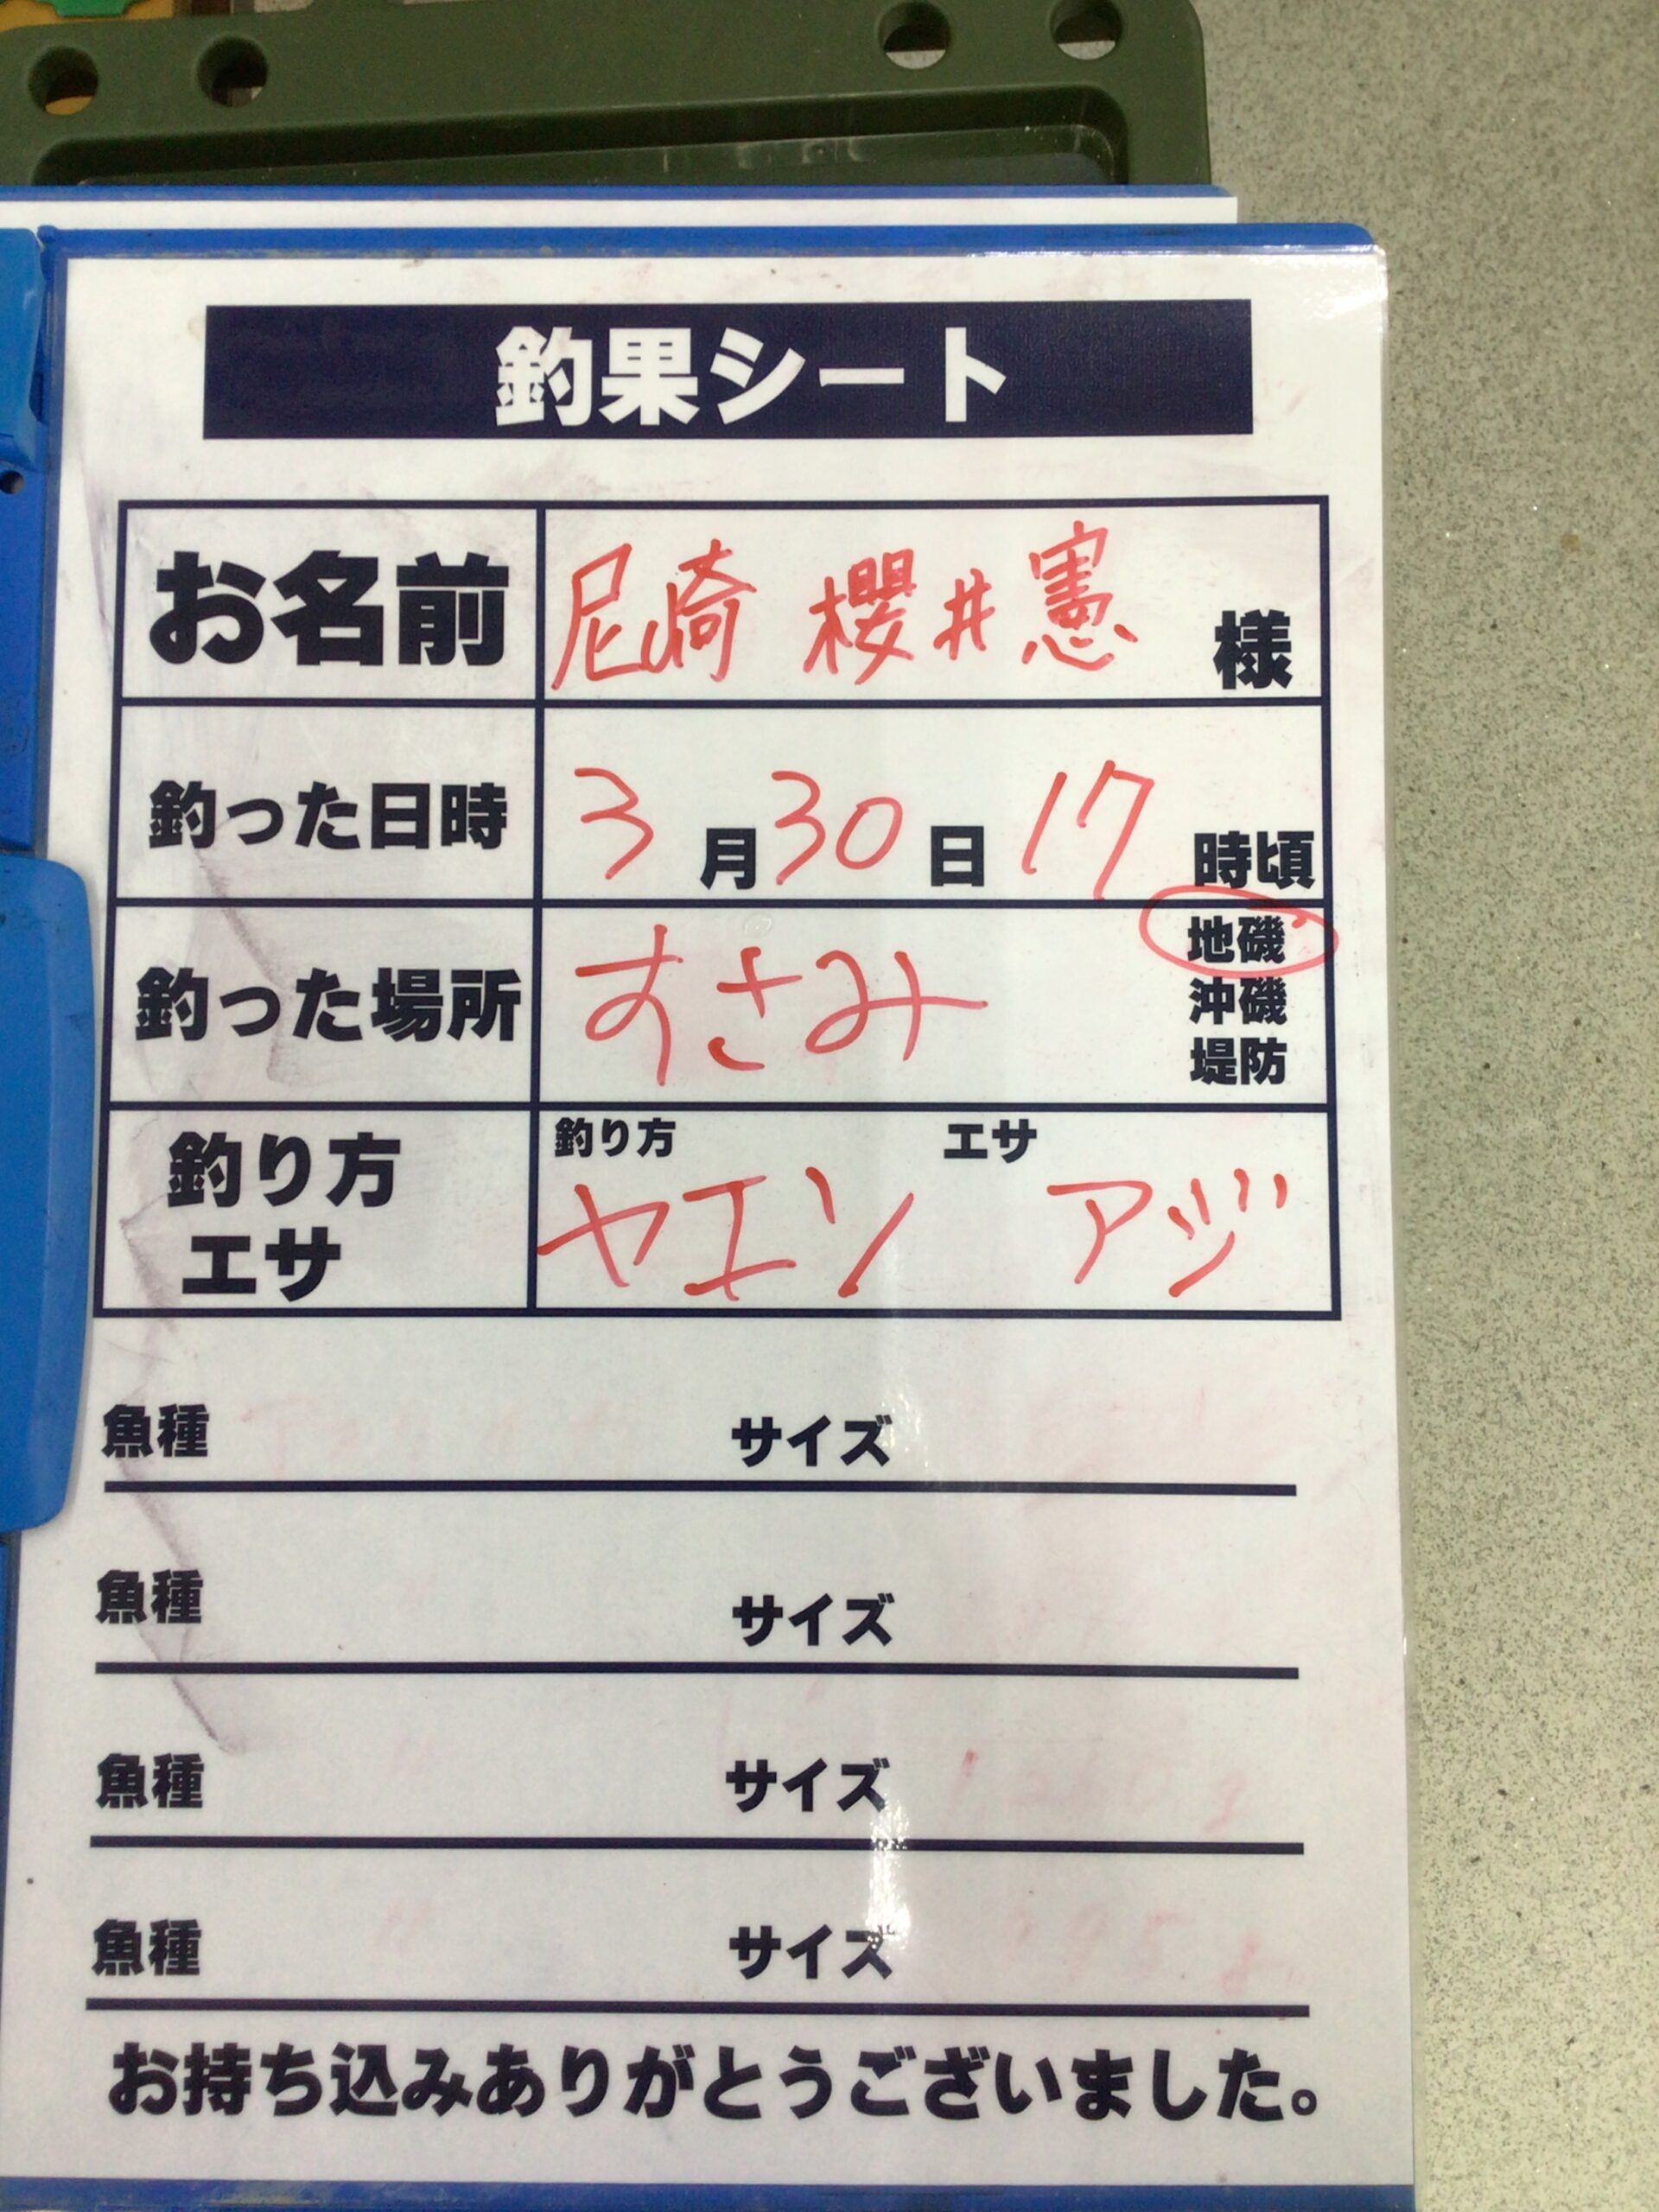 釣果シート
お名前 尼崎 櫻井憲 様
釣った日時 3月30日17時頃
釣った場所 すさみ 地磯
沖磯
堤防
釣り方 エサ
釣り方 ヤエン アジ
エサ
魚種 サイズ
魚種 サイズ
魚種 サイズ
魚種 サイズ
お持ち込みありがとうございました。